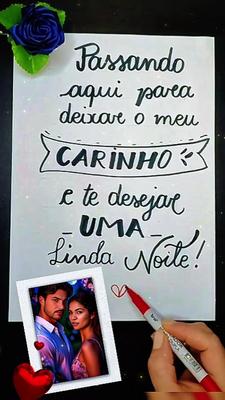 Passando
aqui para
deixar o meu
CARINHO
e te desejar
_UMA_
Linda Noite!